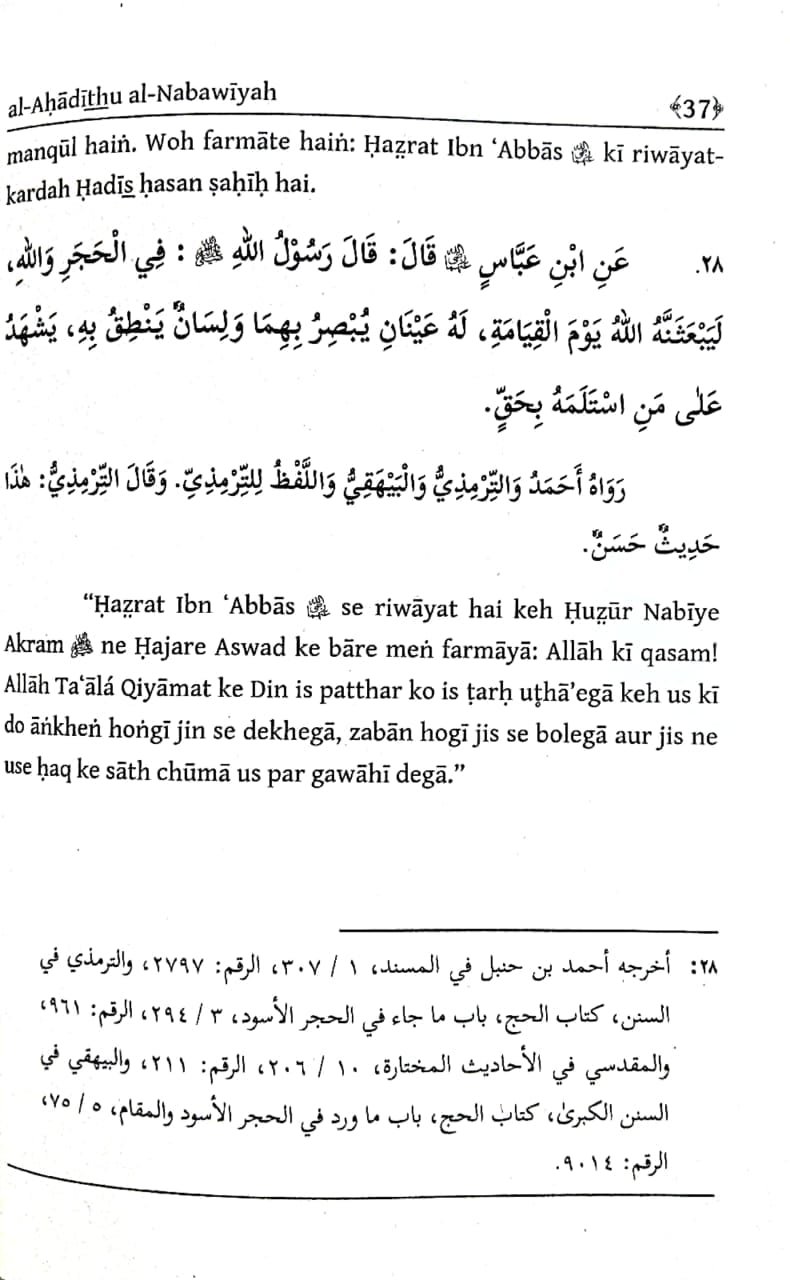 al-Aḥādīthu al-Nabawīyah
﴾37﴿
manqūl haiṅ. Woh farmāte haiṅ: Ḥaz̤rat Ibn ‘Abbās ؓ kī riwāyat-
kardah Ḥadīs̲ ḥasan ṣaḥīḥ hai.
٢٨. عَنِ ابْنِ عَبَّاسٍ ؓ قَالَ: قَالَ رَسُوْلُ اللهِ ﷺ : فِي الْحَجَرِ وَاللهِ،
لَيَبْعَثَنَّهُ اللهُ يَوْمَ الْقِيَامَةِ، لَهُ عَيْنَانِ يُبْصِرُ بِهِمَا وَلِسَانٌ يَنْطِقُ بِهِ، يَشْهَدُ
عَلٰى مَنِ اسْتَلَمَهُ بِحَقٍّ.
رَوَاهُ أَحْمَدُ وَالتِّرْمِذِيُّ وَالْبَيْهَقِيُّ وَاللَّفْظُ لِلتِّرْمِذِيِّ. وَقَالَ التِّرْمِذِيُّ: هٰذَا
حَدِيثٌ حَسَنٌ.
“Ḥaz̤rat Ibn ‘Abbās ؓ se riwāyat hai keh Ḥuz̤ūr Nabīye
Akram ﷺ ne Ḥajare Aswad ke bāre meṅ farmāyā: Allāh kī qasam!
Allāh Ta‘ālá Qiyāmat ke Din is patthar ko is ṭarḥ uṭhā’egā keh us kī
do āṅkheṅ hoṅgī jin se dekhegā, zabān hogī jis se bolegā aur jis ne
use ḥaq ke sāth chūmā us par gawāhī degā.”
٢٨: أخرجه أحمد بن حنبل في المسند، ١ / ٣٠٧، الرقم: ٢٧٩٧، والترمذي في
السنن، كتاب الحج، باب ما جاء في الحجر الأسود، ٣ / ٢٩٤، الرقم: ٩٦١،
والمقدسي في الأحاديث المختارة، ١٠ / ٢٠٦، الرقم: ٢١١، والبيهقي في
السنن الكبرىٰ، كتاب الحج، باب ما ورد في الحجر الأسود والمقام، ٥ / ٧٥،
الرقم: ٩٠١٤.